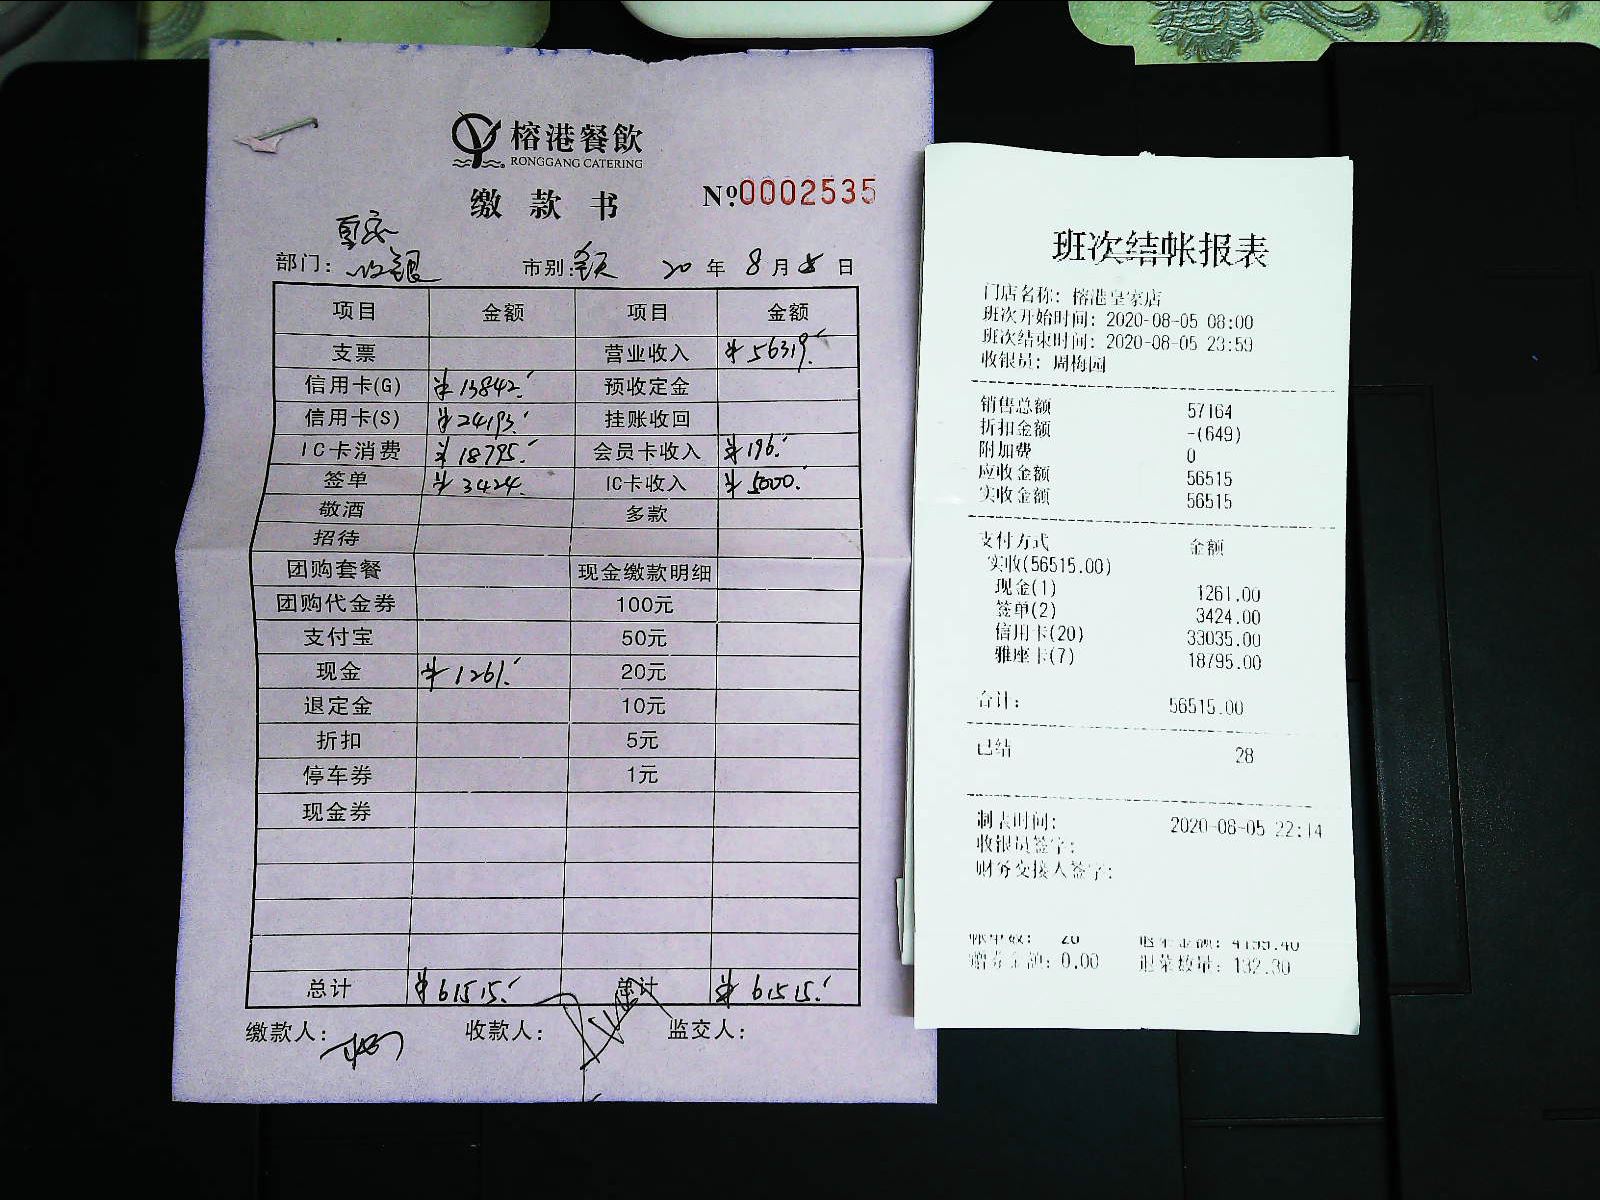 榕港餐飲
RONGGANG CATERING
缴款书 №0002535
皇家
部门：收银 市别：全天 20年8月5日
项目 金额 项目 金额
支票 营业收入 ¥56319.
信用卡(G) ¥13842. 预收定金
信用卡(S) ¥24193. 挂账收回
IC卡消费 ¥18795. 会员卡收入 ¥196.
签单 ¥3424. IC卡收入 ¥5000.
敬酒 多款
招待
团购套餐 现金缴款明细
团购代金券 100元
支付宝 50元
现金 ¥1261. 20元
退定金 10元
折扣 5元
停车券 1元
现金券
总计 ¥61515. 总计 ¥61515.
缴款人： 收款人： 监交人：
班次结帐报表
门店名称：榕港皇家店
班次开始时间：2020-08-05 08:00
班次结束时间：2020-08-05 23:59
收银员：周梅园
销售总额 57164
折扣金额 -(649)
附加费 0
应收金额 56515
实收金额 56515
支付方式 金额
实收(56515.00)
现金(1) 1261.00
签单(2) 3424.00
信用卡(20) 33035.00
雅座卡(7) 18795.00
合计： 56515.00
已结 28
制表时间： 2020-08-05 22:14
收银员签字：
财务交接人签字：
帐单数： 28 退菜金额：4199.40
赠券金额：0.00 退菜数量：132.30